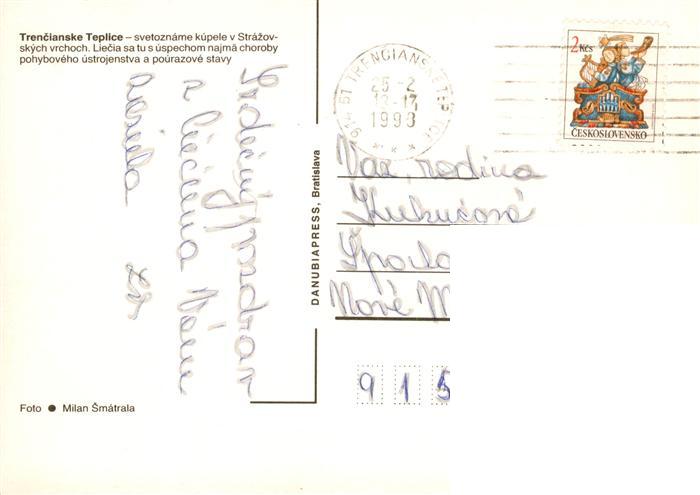 Trenčianske Teplice – svetoznáme kúpele v Strážov-
ských vrchoch. Liečia sa tu s úspechom najmä choroby
pohybového ústrojenstva a poúrazové stavy
Srdečný pozdrav
z liečenia Vám
DANUBIAPRESS, Bratislava
914 51 TRENČIANSKE TEPLICE
25.-2
1993
2 Kčs
ČESKOSLOVENSKO
Váž. rodina
Kukučová
Nové M
915
Foto ● Milan Šmátrala